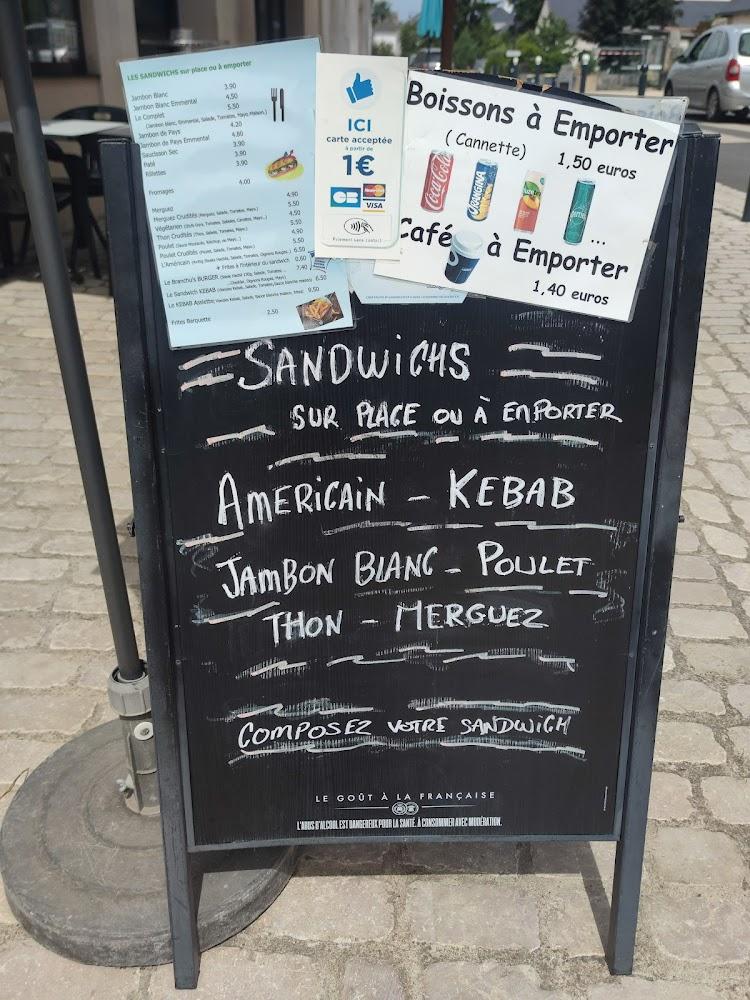 LES SANDWICHS sur place ou à emporter
Jambon Blanc 3.90
Jambon Blanc Emmental 4,50
Le Complet 5.50
(Jambon blanc, Emmental, Salade, Tomates, Mayo Maison)
Jambon de Pays 4.20
Jambon de Pays Emmental 4,80
Saucisson Sec 3.90
Paté 3.90
Rillettes 3.90
Fromages 4.00
Merguez 4.90
Merguez Crudités (Merguez, Salade, Tomates, Mayo..) 5.50
Végétarien
Thon Crudités (Thon, Salade, Tomates, Mayo)
Poulet
Poulet Crudités
L'Américain 6.50
+ Frites à l'intérieur du sandwich 0.60
Le Branchu's BURGER 7.40
Le Sandwich KEBAB 6.50
Le KEBAB Assiette 9.50
Frites Barquette 2.50
ICI
carte acceptée
à partir de
1€
CB
MasterCard
VISA
Paiement sans contact
Boissons à Emporter
(Cannette)
1,50 euros
Coca-Cola
ORANGINA
...
Café à Emporter
1,40 euros
SANDWiCHS
SUR PLACE OU À EMPORTER
AMERICAIN - KEBAB
JAMBON BLANC - POULET
THON - MERGUEZ
COMPOSEZ VOTRE SANDWICH
LE GOÛT À LA FRANÇAISE
L'ABUS D'ALCOOL EST DANGEREUX POUR LA SANTÉ. À CONSOMMER AVEC MODÉRATION.